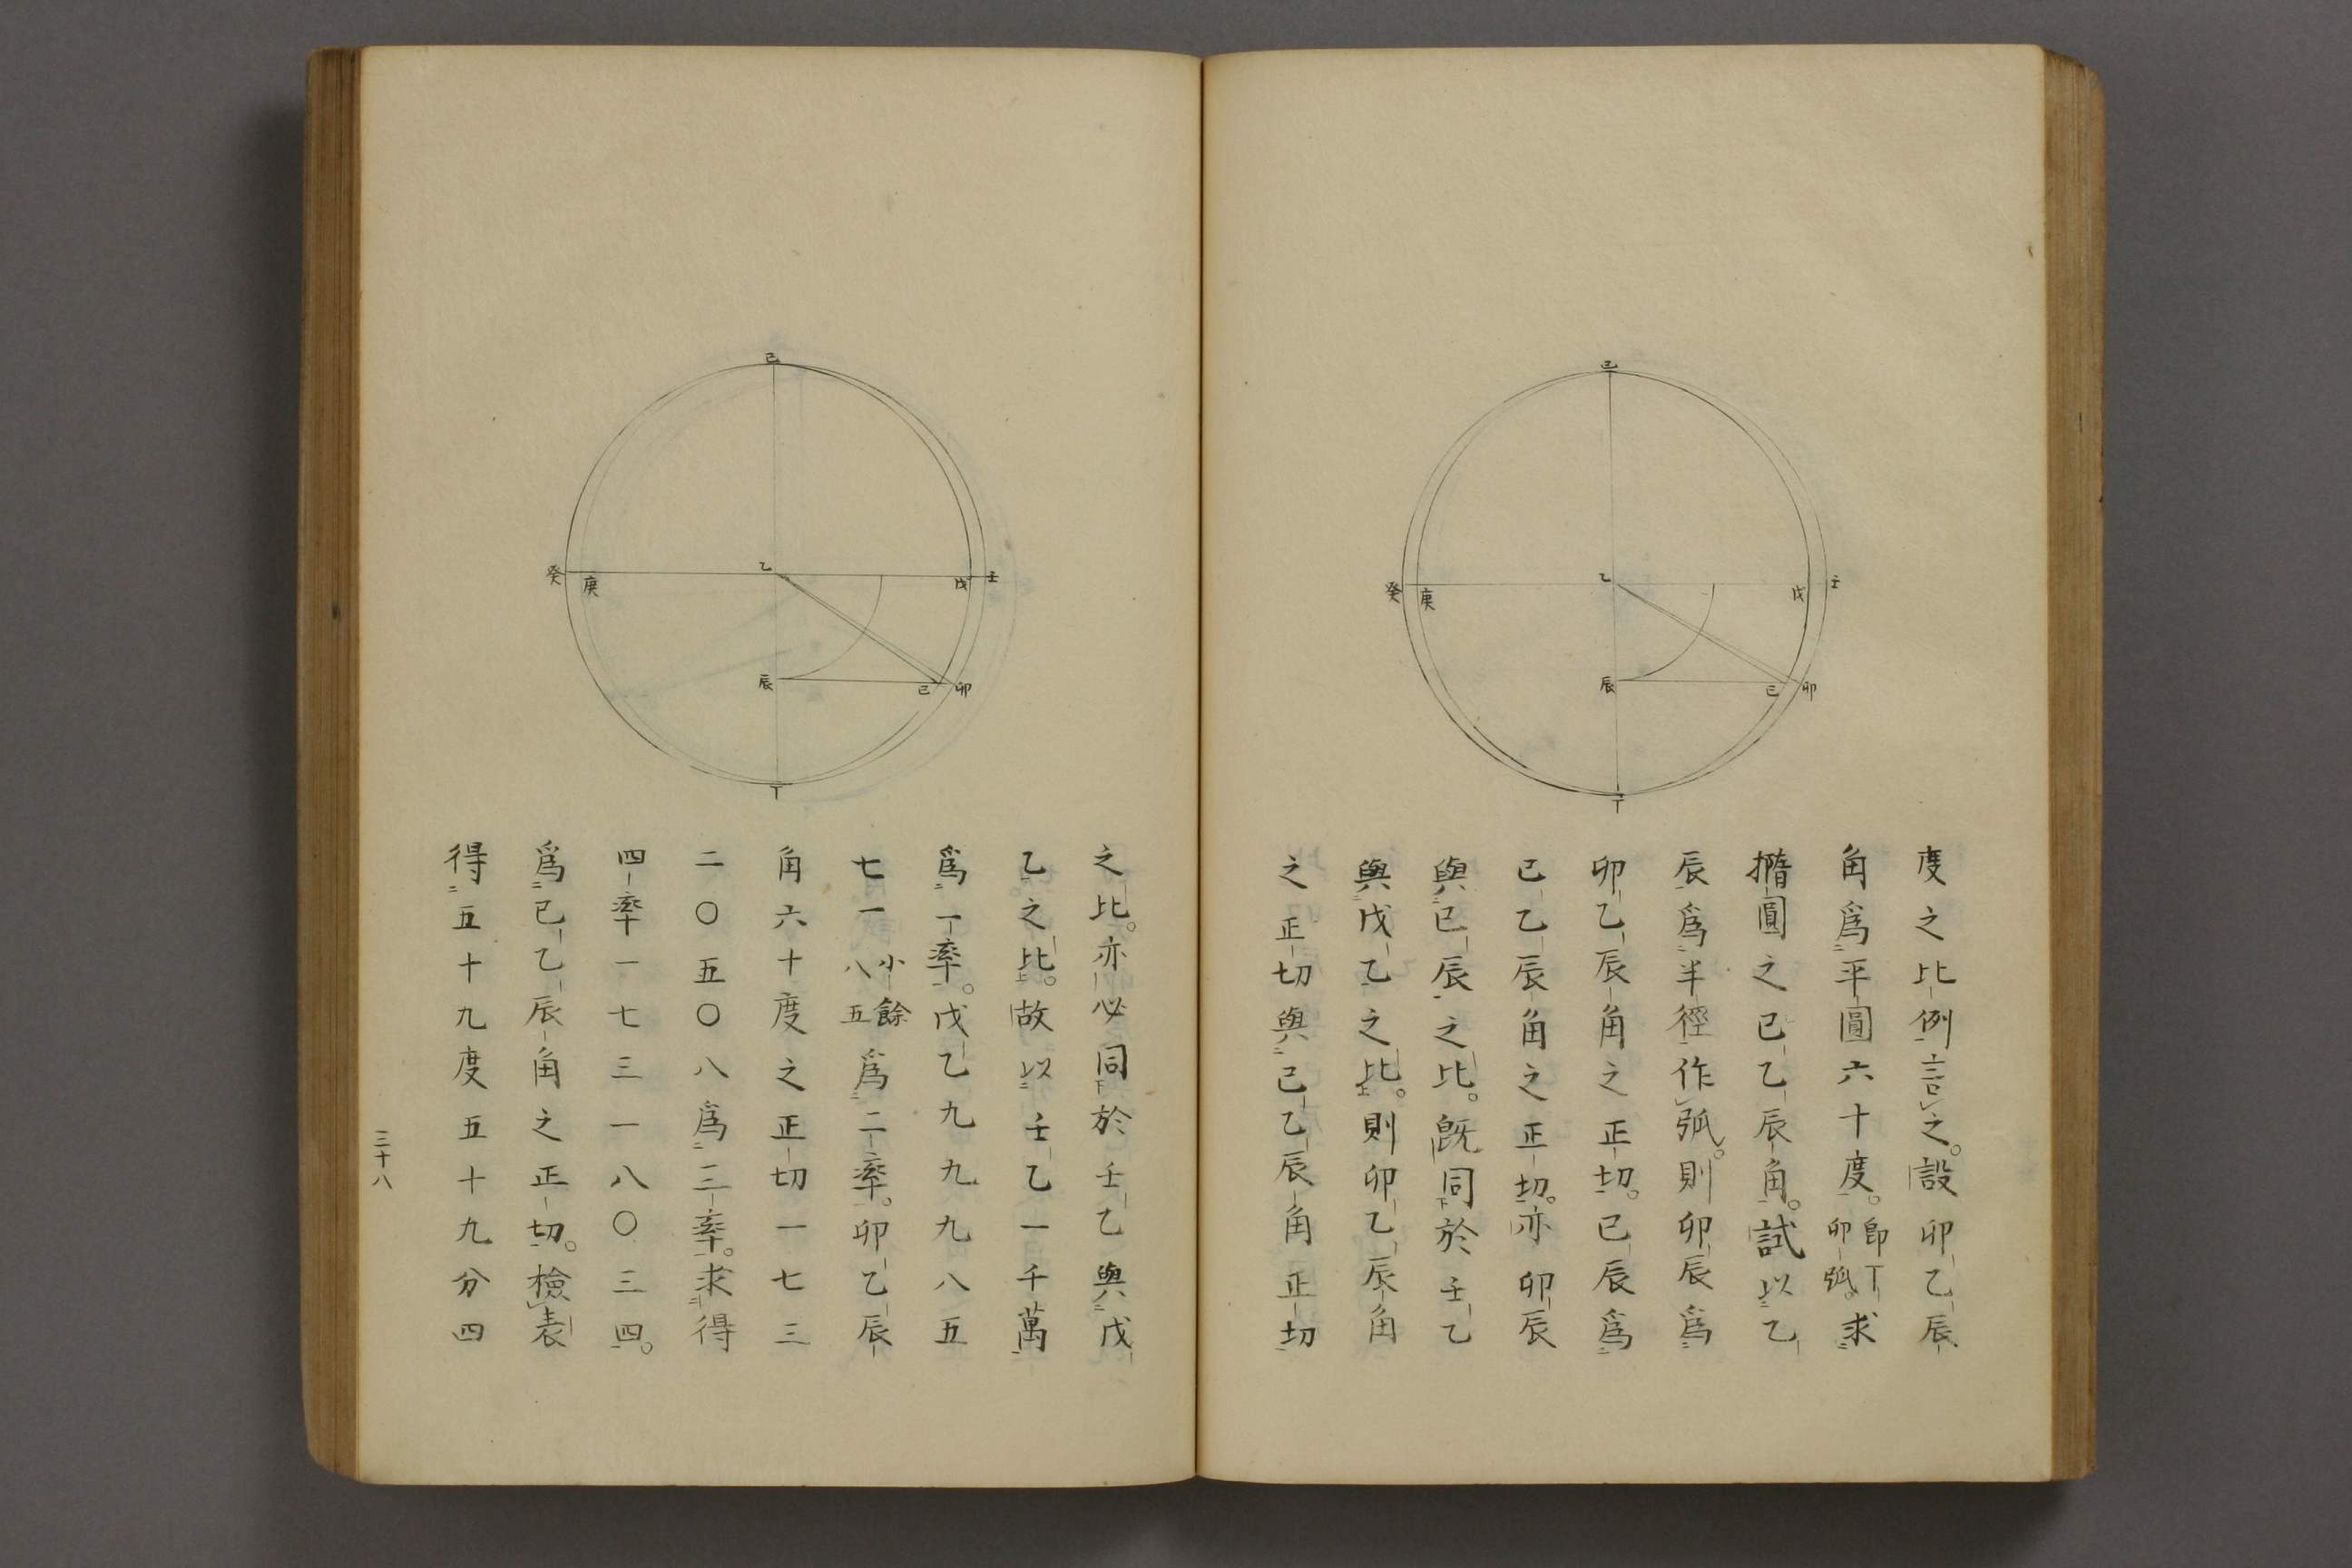 己
癸
庚
乙
戊
壬
辰
巳
卯
丁
度之比例言之。設卯乙辰
角爲平圓六十度。卽丁卯弧。求
撱圓之巳乙辰角。試以乙
辰爲半徑作弧。則卯辰爲
卯乙辰角之正切。巳辰爲
巳乙辰角之正切。亦卯辰
與巳辰之比。旣同於壬乙
與戊乙之比。則卯乙辰角
之正切與巳乙辰角正切
己
癸
庚
乙
戊
壬
辰
巳
卯
丁
之比。亦必同於壬乙與戊
乙之比。故以壬乙一千萬
爲一率。戊乙九九九八五
七一小餘八五爲二率。卯乙辰
角六十度之正切一七三
二〇五〇八爲三率。求得
四率一七三一八〇三四。
爲巳乙辰角之正切。檢表
得五十九度五十九分四
三十八